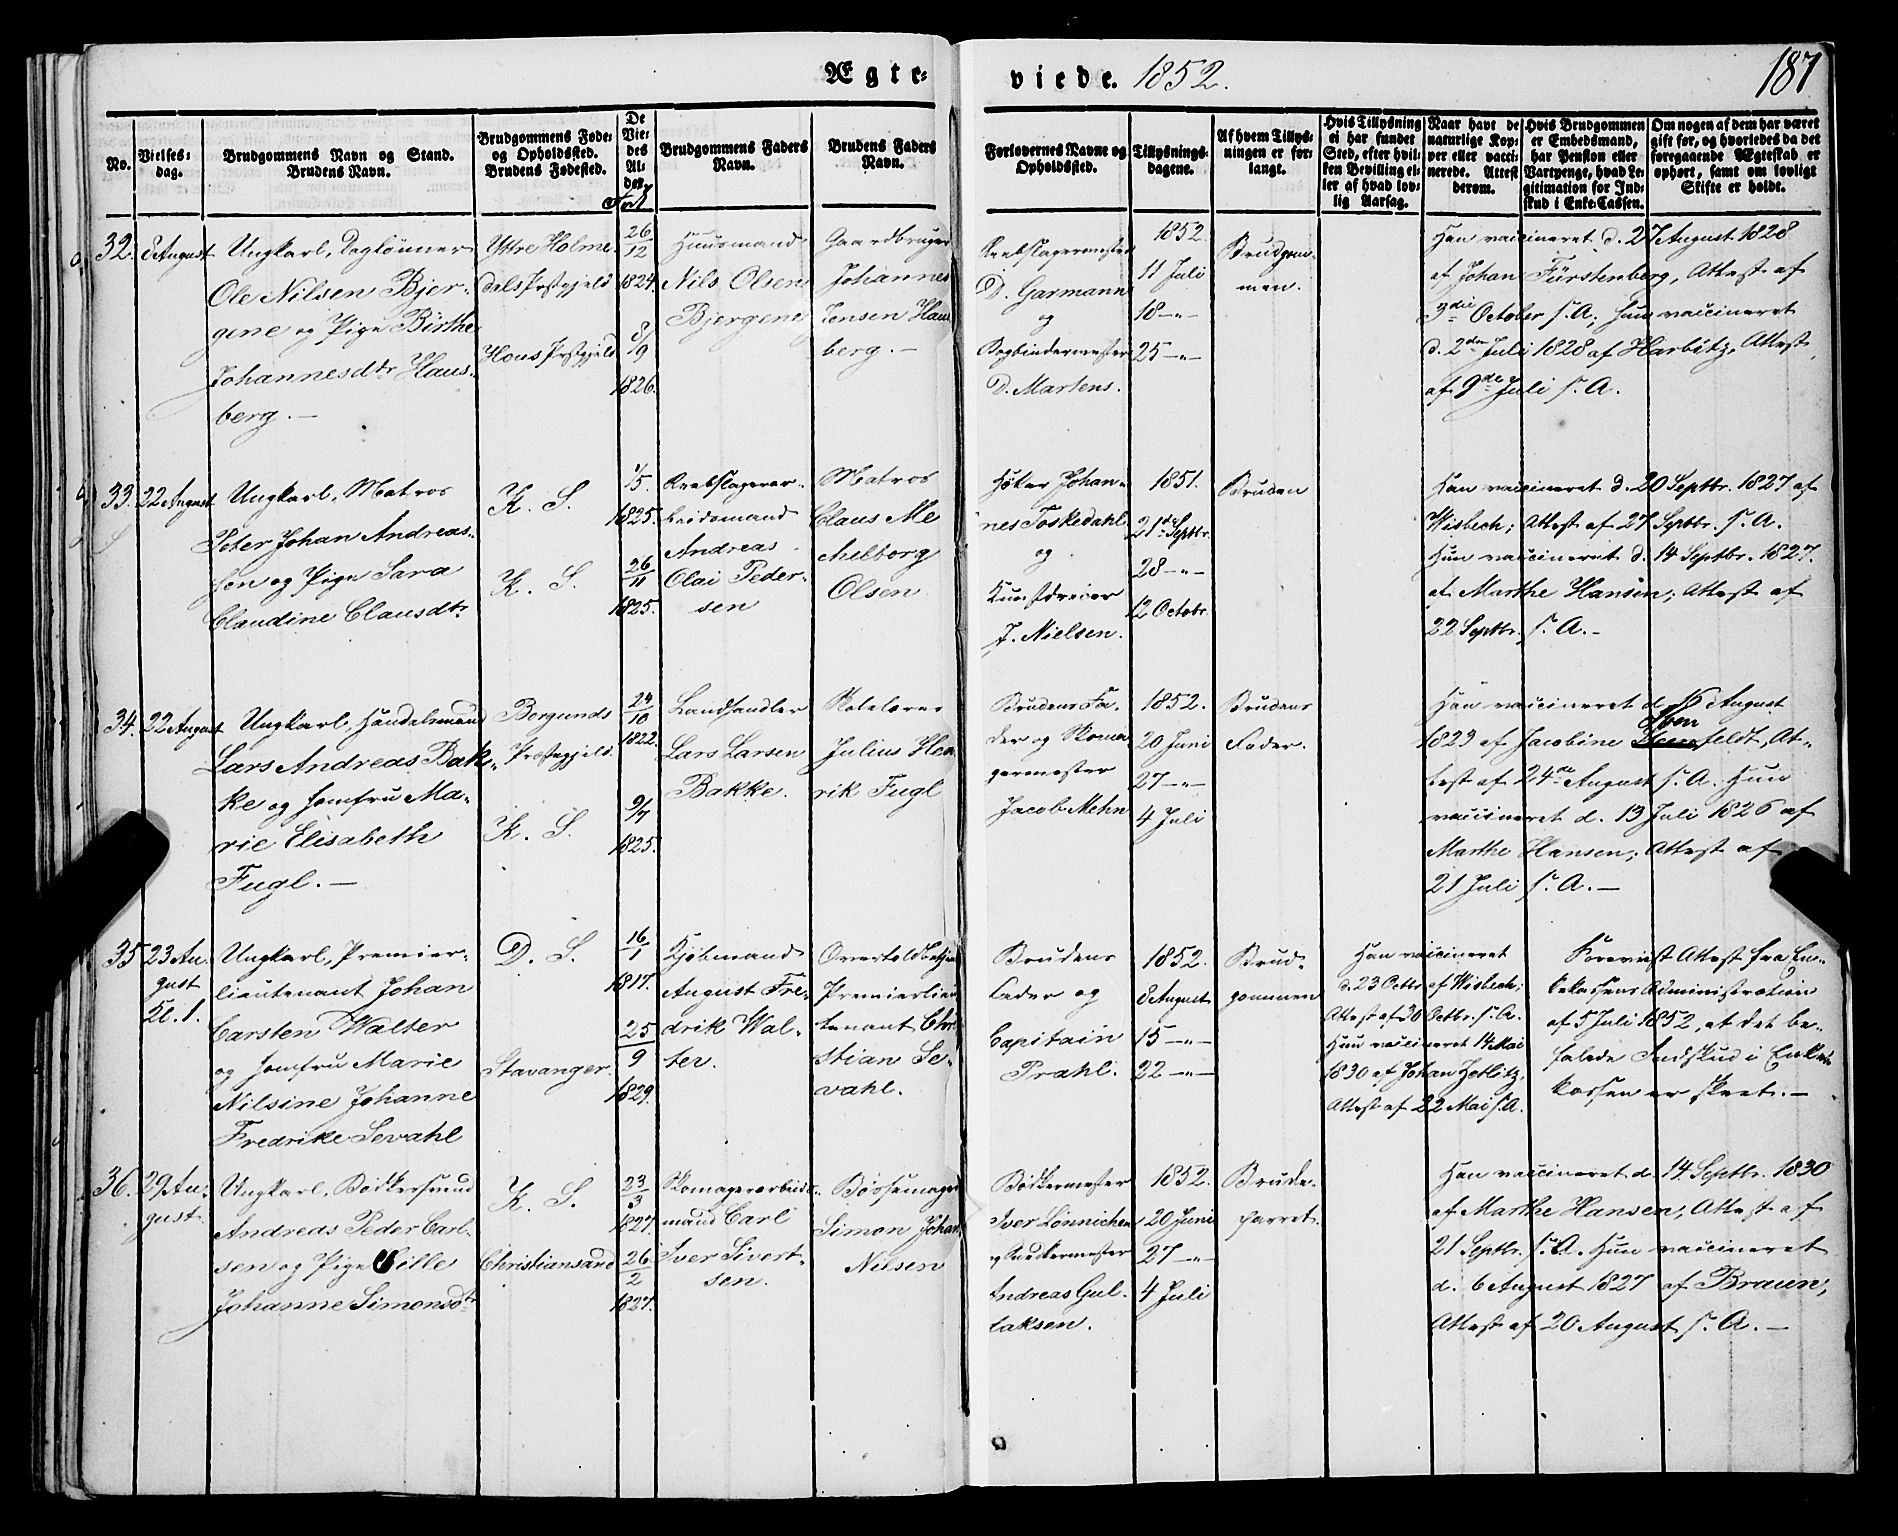 Ægte-
viede. 1852.
187
No.
Vielses-
dag.
Brudgommens Navn og Stand.
Brudens Navn.
Brudgommens Føde-
og Opholdssted.
Brudens Fødested.
De
Vie-
des
Al-
der.
Født
Brudgommens Faders
Navn.
Brudens Faders
Navn.
Forlovernes Navne og
Opholdssted.
Tillysnings-
dagene.
Af hvem Tillys-
ningen er for-
langt.
Hvis Tillysning
ei har fundet
Sted, efter hvil-
ken Bevilling el-
ler af hvad lov-
lig Aarsag.
Naar havt de
naturlige Kop-
per eller vacci-
nerede. Attest
derom.
Hvis Brudgommen
er Embedsmand,
har Pension eller
Vartpenge, hvad Le-
gitimation for Ind-
skud i Enke-Cassen.
Om nogen af dem har været
gift før, og hvorledes da det
foregaaende Ægteskab er
ophørt, samt om lovligt
Skifte er holdt.
32.
8 August
Ungkarl, Daglønner
Ole Nilsen Bjer-
gene og Pige Birthe
Johannesdtr Haus-
berg. —
Ytre Holme-
dals Prstgjeld
Hous Prstgjeld
26/12
1824.
8/9
1826.
Huusmand
Nils Olsen
Bjergene
Gaardbruger
Johannes
Jensen Haus
berg. —
Reebslagermester
D. Garmann
og
Bogbindermester
D. Martens.
1852.
11 Juli
18 —„—
25 —„—
Brudgom-
men.
Han vaccineret d. 27 August 1828
af Johan Fürstenberg, Attest af
3die October s. A; Hun vaccineret
d. 2den Juli 1828 af Harbitz, Attest
af 9de Juli s. A.
33.
22 August
Ungkarl, Matros
Peter Johan Andreas-
sen og Pige Sara
Claudine Clausdtr
K. S.
K. S.
1/5.
1825.
26/11
1825.
Reebslagerar-
beidsmand
Andreas
Olai Peder-
sen
Matros
Claus Me
chelborg
Olsen
Høker Johan-
nes Toskedahl
og
Kunstdreier
J. Nielsen.
1851.
21de Septbr.
28 —„—
12 Octobr.
Bruden
Han vaccineret d. 20 Septbr. 1827 af
Wisbech; Attest af 27 Septbr. s. A.
Hun vaccineret d. 14 Septbr. 1827.
af Marthe Hansen; Attest af
22 Septbr. s. A. —
34.
22 August
Ungkarl, Handelsmand
Lars Andreas Bak-
ke og Jomfru Ma-
rie Elisabeth
Fugl. —
Borgunds
Præstegjeld.
K. S.
24/10
1822.
9/7
1825.
Landhandler
Lars Larsen
Bakke.
Skolelærer
Julius Hen
rik Fugl
Brudens Fa-
der og Skoma-
germester
Jacob Mehn
1852.
20 Juni
27 —„—
4 Juli
Brudens
Fader.
Han vaccineret d. 16 August
1823 af Jacobine Iben feldt, At-
test af 24de August s. A. Hun
vaccineret d. 13 Juli 1826 af
Marthe Hansen; Attest af
21 Juli s. A. —
35
23 Au-
gust
Kl. 1.
Ungkarl, Premier-
lieutenant Johan
Carsten Walter
og Jomfru Marie
Nilsine Johanne
Fredrike Sevahl
D. S.
Stavanger.
16/1
1817.
25/9
1829.
Kjøbmand
August Fre-
drik Wal-
ter.
Overtoldbetjent
Premierlieu
tenant Chri
stian Se-
vahl.
Brudens
Fader og
Capitain
Prahl.
1852.
8 August
15 —„—
22 —„—
Brud-
gommen
Han vaccineret
d. 23 Octbr. af Wisbech;
Attest af 30 Octbr. s. A.
Hun vaccineret 14 Mai
1830 af Johan Zetlitz,
Attest af 22 Mai s. A.
Forevist Attest fra En-
kekassens Administration
af 5 Juli 1852, at det be-
falede Indskud i Enke-
kassen er skeet. —
36.
29 Au-
gust.
Ungkarl, Bødkersvend
Andreas Peder Carl-
sen og Pige Cille
Johanne Simonsdtr
K. S.
Christiansand
23/3
1827.
26/2
1827.
Skomagerarbeids-
mand Carl
Iver Sivert-
sen.
Bøssemager
Simon Johan
Nilsen
Bødkermester
Iver Lønnichen
og Snedkermester
Andreas Gul-
laksen.
1852.
20 Juni
27 —„—
4 Juli
Brude-
parret.
Han vaccineret d. 14 Septbr. 1830
af Marthe Hansen; Attest af
21 Septbr. s. A. Hun vaccineret
d. 6 August 1827 af Braun;
Attest af 20 August s. A. —